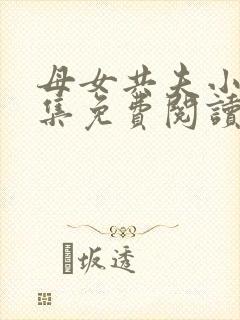 母女共夫小
集免费閱讀
坂透